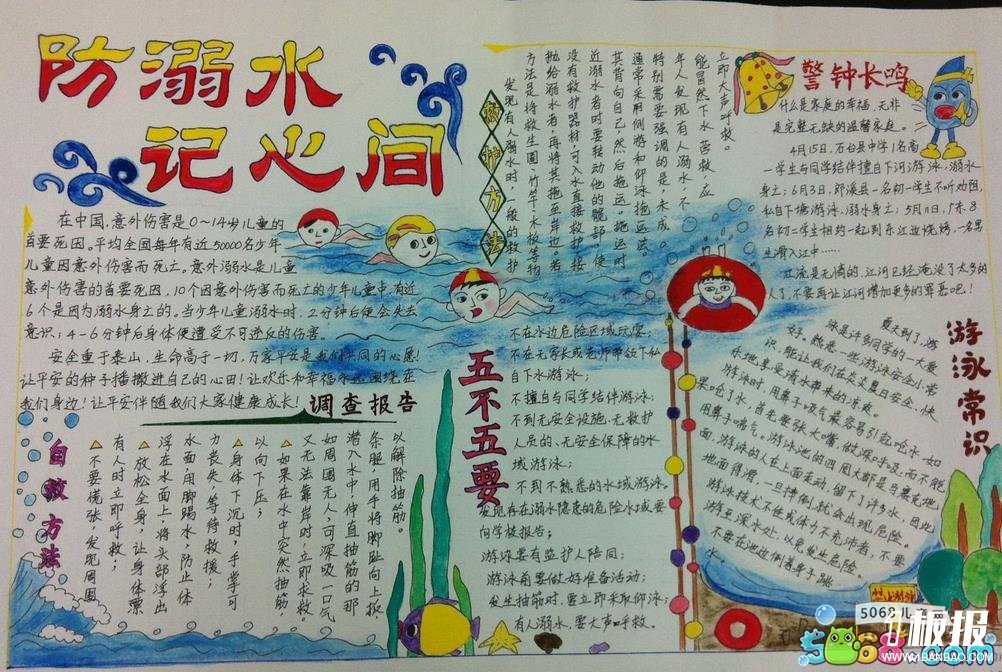 防溺水
记心间
在中国,意外伤害是0~14岁儿童的
首要死因。平均全国每年有近50000名少年
儿童因意外伤害而死亡。意外溺水是儿童
意外伤害的首要死因,10个因意外伤害而死亡的少年儿童中,有近
6个是因为溺水身亡的。当少年儿童溺水时,2分钟后便会失去
意识;4-6分钟后身体便遭受不可逆反的伤害
安全重于泰山,生命高于一切,万家平安是我们共同的心愿!
让平安的种子播撒进自己的心田!让欢乐和幸福永远围绕在
我们身边!让平安伴随我们大家健康成长!
调查报告
救护方法
发现有人溺水时,一般的救护
方法是将救生圈、竹竿、木板等物
抛给溺水者,再将其拖至岸边。若
没有救护器材,可入水直接救护。接
近溺水者时要转动他的髋部,使
其背向自己,然后拖运。拖运时
通常采用侧游和仰泳拖运法。
特别需要强调的是:未成
年人发现有人溺水,不
能冒然下水营救,应
立即大声呼救。
警钟长鸣
什么是家庭的幸福,无非
是完整无缺的温馨家庭。
4月15日,石台县中学1名高
一学生与同学结伴擅自下河游泳,溺水
身亡;6月3日,郎溪县一名初一学生不听劝阻,
私自下塘游泳,溺水身亡;5月11日,广东8
名初二学生相约一起到东江边烧烤,一名男
生滑入江中……
江流是无情的,江河已经淹没了太多的
人了,不要再让江河增加更多的罪恶吧!
自救方法
不要慌张,发现周围
有人时立即呼救;
放松全身,让身体漂
浮在水面上,将头部浮出
水面,用脚踢水,防止体
力丧失,等待救援;
身体下沉时,手掌可
以向下压;
如果在水中突然抽筋,
又无法靠岸时,立即求救。
如周围无人,可深吸一口气
潜入水中,伸直抽筋的那
条腿,用手将脚趾向上扳,
以解除抽筋。
五不五要
不在水边危险区域玩耍;
不在无家长或老师带领下私
自下水游泳;
不擅自与同学结伴游泳;
不到无安全设施、无救护
人员的、无安全保障的水
域游泳;
不到不熟悉的水域游泳。
发现存在溺水隐患的危险水域要
向学校报告;
游泳要有监护人陪同;
游泳前要做好准备活动;
发生抽筋时,要立即采取仰泳;
有人溺水,要大声呼救。
游泳常识
夏天到了,游
泳是许多同学的一大爱
好。熟悉一些游泳安全小常
识,能让我们在炎炎夏日安全、快
乐地享受清水带来的清爽。
游泳时,用鼻子吸气最容易引起呛水,如
果呛了水,首先要张大嘴,做深呼吸;而不能
用鼻子喘气。游泳池的四周大都是马赛克地
面,游泳的人在上面走动,留下了许多水,因此
地面得滑,一旦摔倒,就会出现危险。
游泳技术不佳或体力不充沛者,不要
游至深水处,以免发生危险。
不要在池边倒着身子跳
水。
禁止射江
5068儿童
板报
WWW.1BANBAO.COM